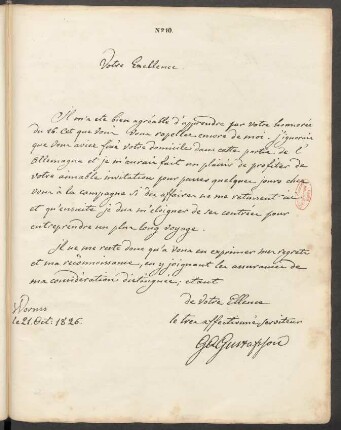 Nº 10.
Votre Excellence
Il m'a été bien agréable d'apprendre par votre honorée
du 16. Cet que vous vous rapellez encore de moi. j'ignorais
que vous aviez fixé votre domicile dans cette partie de l'
Allemagne et je m'aurais fait un plaisir de profiter de
votre aimable invitation pour passer quelques jours chez
vous à la campagne si des affaires ne me retenaient ici
et qu'ensuite je dus m'éloigner de ces contrées pour
entreprendre un plus long voyage.
Il ne me reste donc qu'a vous en exprimer mes regrets
et ma réconnoissance, en y joignant les assurances de
ma considération distinguée; etant
de Votre Ellence
le très affectionné serviteur
Worms
le 21. Oct. 1826.
Gustafsson